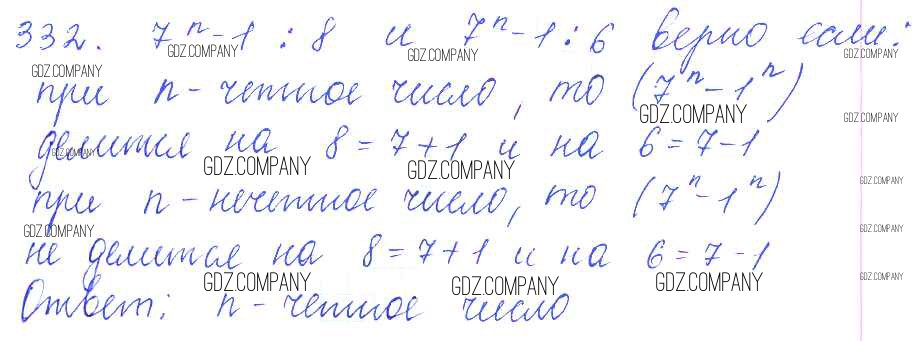 332. 7ⁿ-1 : 8 и 7ⁿ-1 : 6 верно если:
GDZ.COMPANY GDZ.COMPANY GDZ.COMPANY
GDZ.COMPANY
при n - четное число, то (7ⁿ-1ⁿ)
GDZ.COMPANY GDZ.COMPANY
делится на 8 = 7+1 и на 6 = 7-1
GDZ.COMPANY GDZ.COMPANY GDZ.COMPANY
GDZ.COMPANY
при n - нечетное число, то (7ⁿ-1ⁿ)
GDZ.COMPANY GDZ.COMPANY
не делится на 8 = 7+1 и на 6 = 7-1
GDZ.COMPANY GDZ.COMPANY GDZ.COMPANY GDZ.COMPANY
Ответ: n - четное число